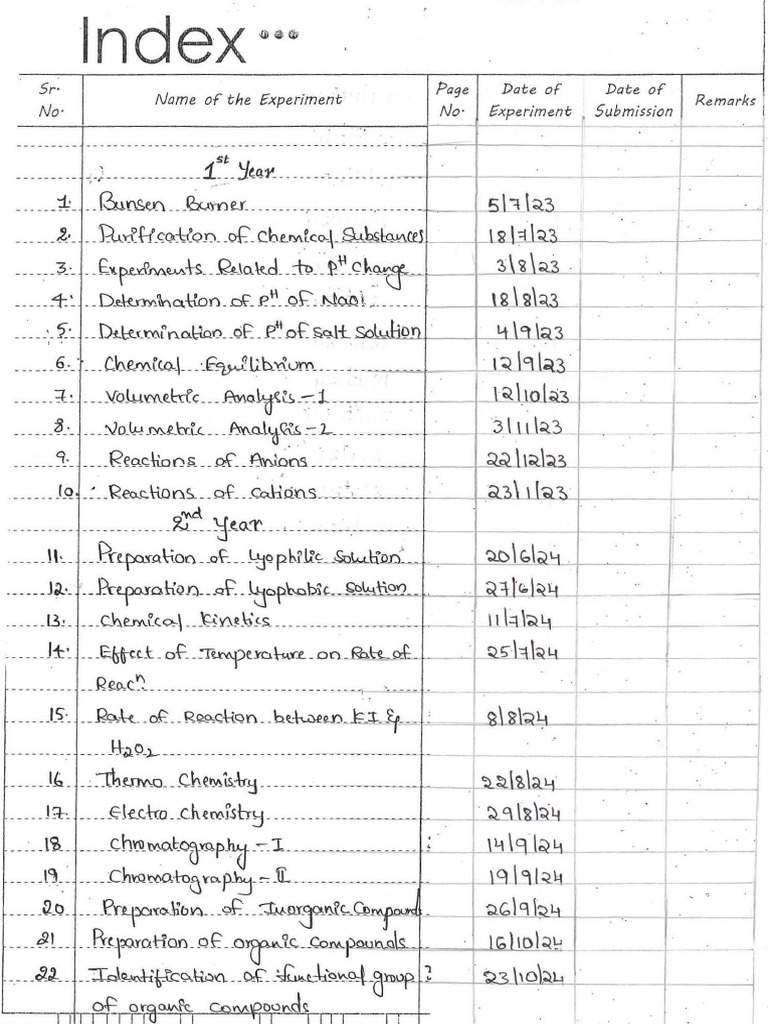 Index
Sr. No. Name of the Experiment Page No. Date of Experiment Date of Submission Remarks
1st Year
1. Bunsen Burner 5/7/23
2. Purification of Chemical Substances 18/7/23
3. Experiments Related to PH Change 3/8/23
4. Determination of PH of 18/8/23
5. Determination of PH of salt solution 4/9/23
6. Chemical Equilibrium 12/9/23
7. Volumetric Analysis-1 12/10/23
8. Volumetric Analysis-2 3/11/23
9. Reactions of Anions 22/12/23
10. Reactions of Cations 23/1/23
2nd Year
11. Preparation of lyophilic solution 20/6/24
12. Preparation of lyophobic solution 27/6/24
13. Chemical Kinetics 11/7/24
14. Effect of Temperature on Rate of 25/7/24
Reacn.
15. Rate of Reaction between KI & 8/8/24
H2O2
16 Thermo Chemistry 22/8/24
17. Electro Chemistry 29/8/24
18 Chromatography - I 14/9/24
19 Chromatography - II 19/9/24
20 Preparation of Inorganic Compounds 26/9/24
21 Preparation of organic compounds 16/10/24
22 Identification of functional group 23/10/24
of organic compounds